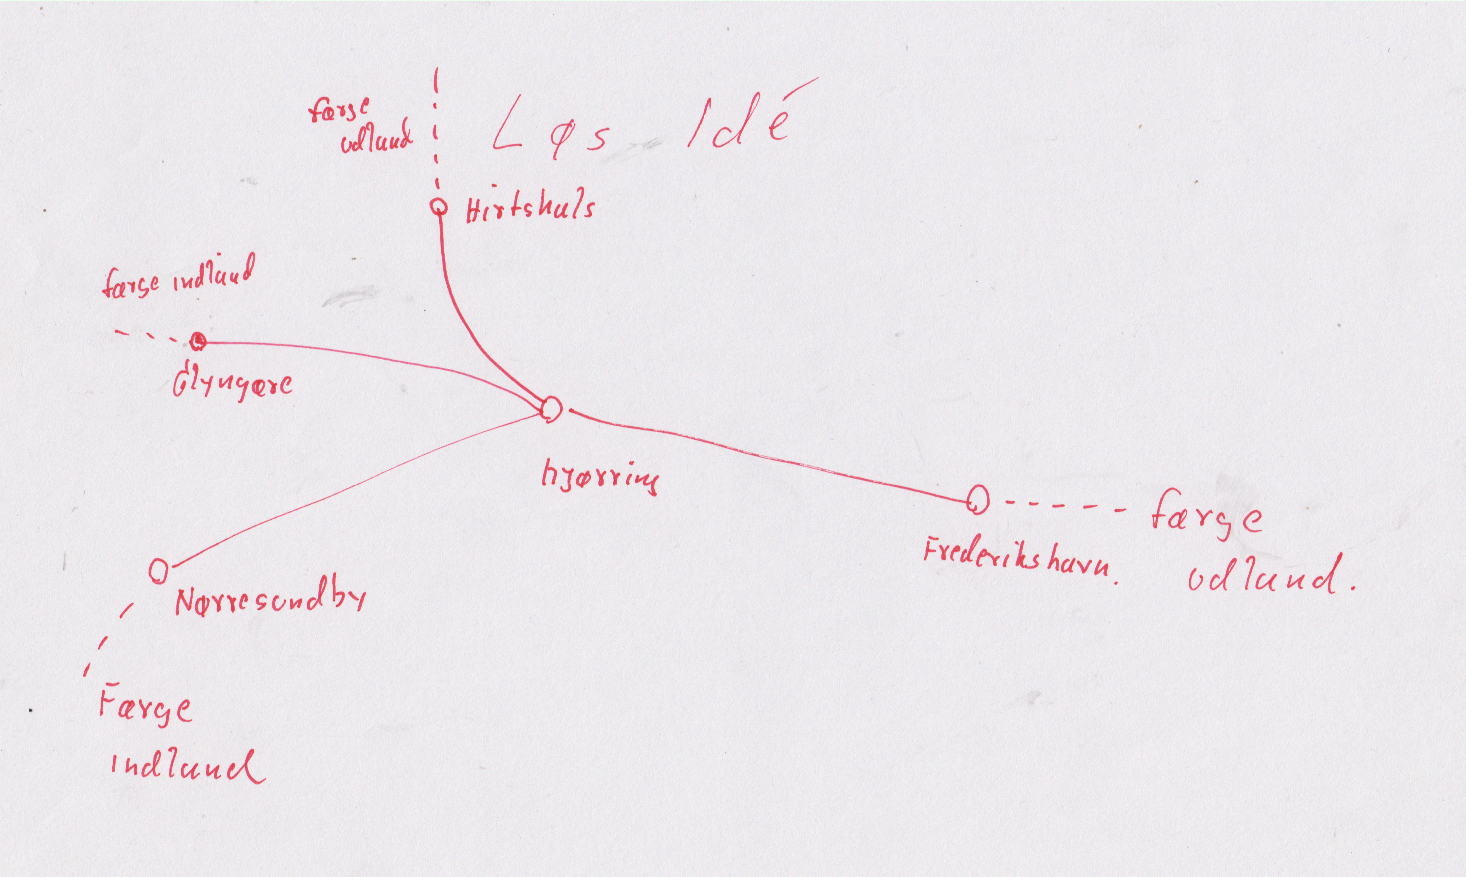 færge
udland
Løs Idé
Hirtshals
færge indland
Glyngøre
hjørring
Frederikshavn.
færge
udland.
Nørresundby
Færge
indland